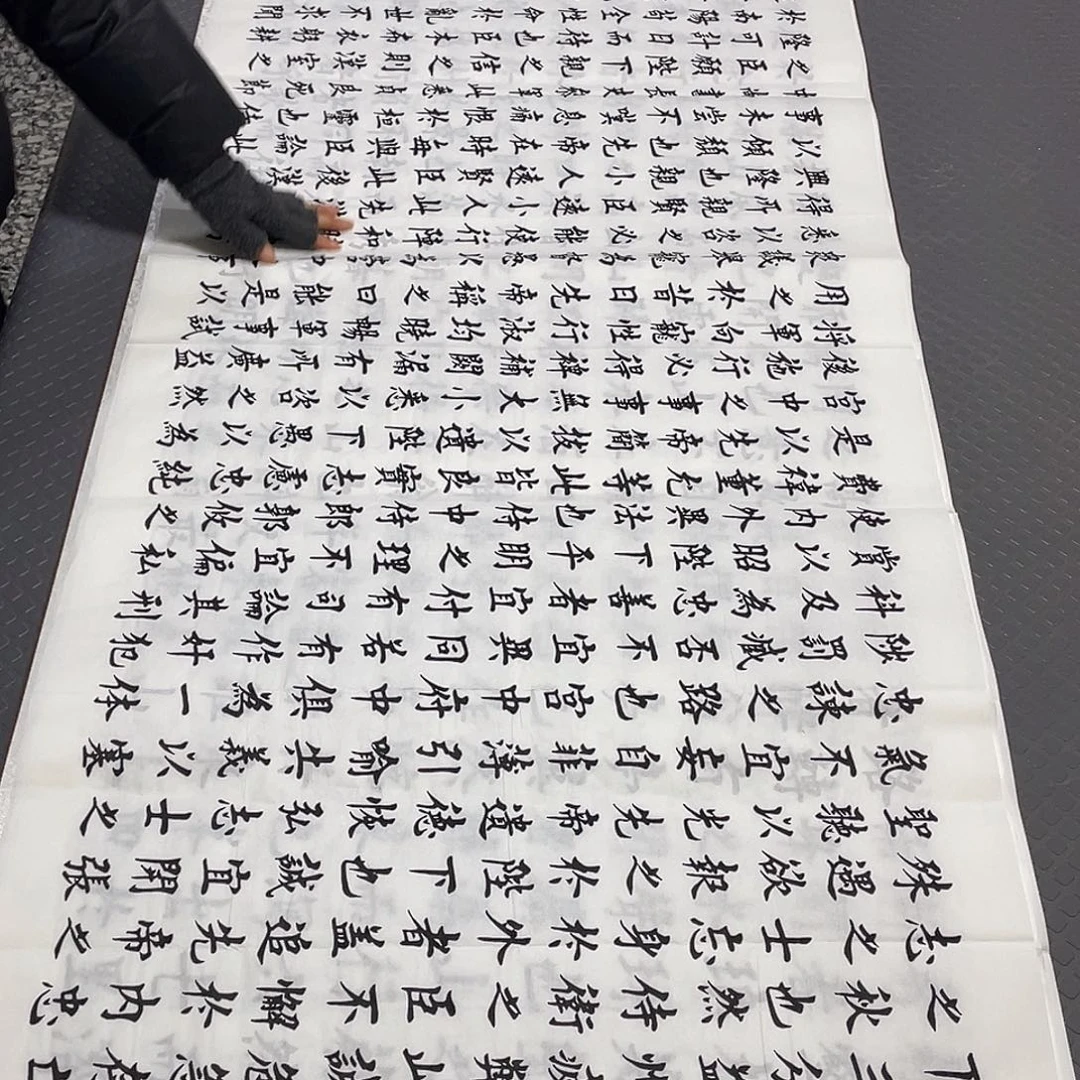 下三分益州疲弊此誠危急存亡
之秋也然侍衛之臣不懈於內忠
志之士忘身於外者蓋追先帝之
殊遇欲報之於陛下也誠宜開張
聖聽以光先帝遺德恢弘志士之
氣不宜妄自菲薄引喻失義以塞
忠諫之路也宮中府中俱為一体
陟罰臧否不宜異同若有作奸犯
科及為忠善者宜付有司論其刑
賞以昭陛下平明之理不宜偏私
使內外異法也侍中侍郎郭攸之
費禕董允等此皆良實志慮忠純
是以先帝簡拔以遺陛下愚以為
宮中之事事無大小悉以咨之然
後施行必得裨補闕漏有所廣益
將軍向寵性行淑均曉暢軍事試
用之於昔日先帝稱之曰能是以
議舉寵為督愚以為營
悉以咨之必能使行陣和
得所親賢臣遠小人此先漢
興隆也親小人遠賢臣此後漢
以傾頹也先帝在時每與臣論此
事未嘗不嘆息痛恨於桓靈也侍
中尚書長史參軍此悉貞良死節
之臣願陛下親之信之則漢室之
隆可計日而待也臣本布衣躬耕
於南陽苟全性命於亂世不求聞